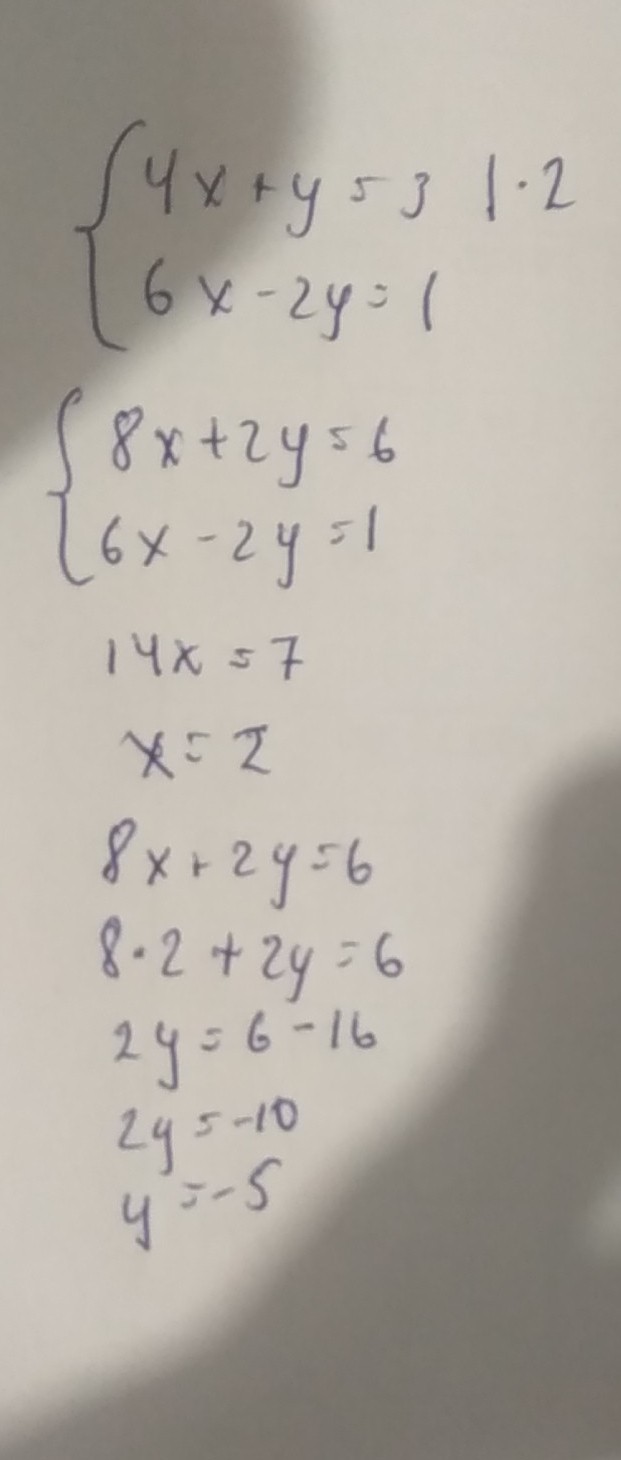 4x+y=3 |·2
6x-2y=1
8x+2y=6
6x-2y=1
14x=7
x=2
8x+2y=6
8·2+2y=6
2y=6-16
2y=-10
y=-5